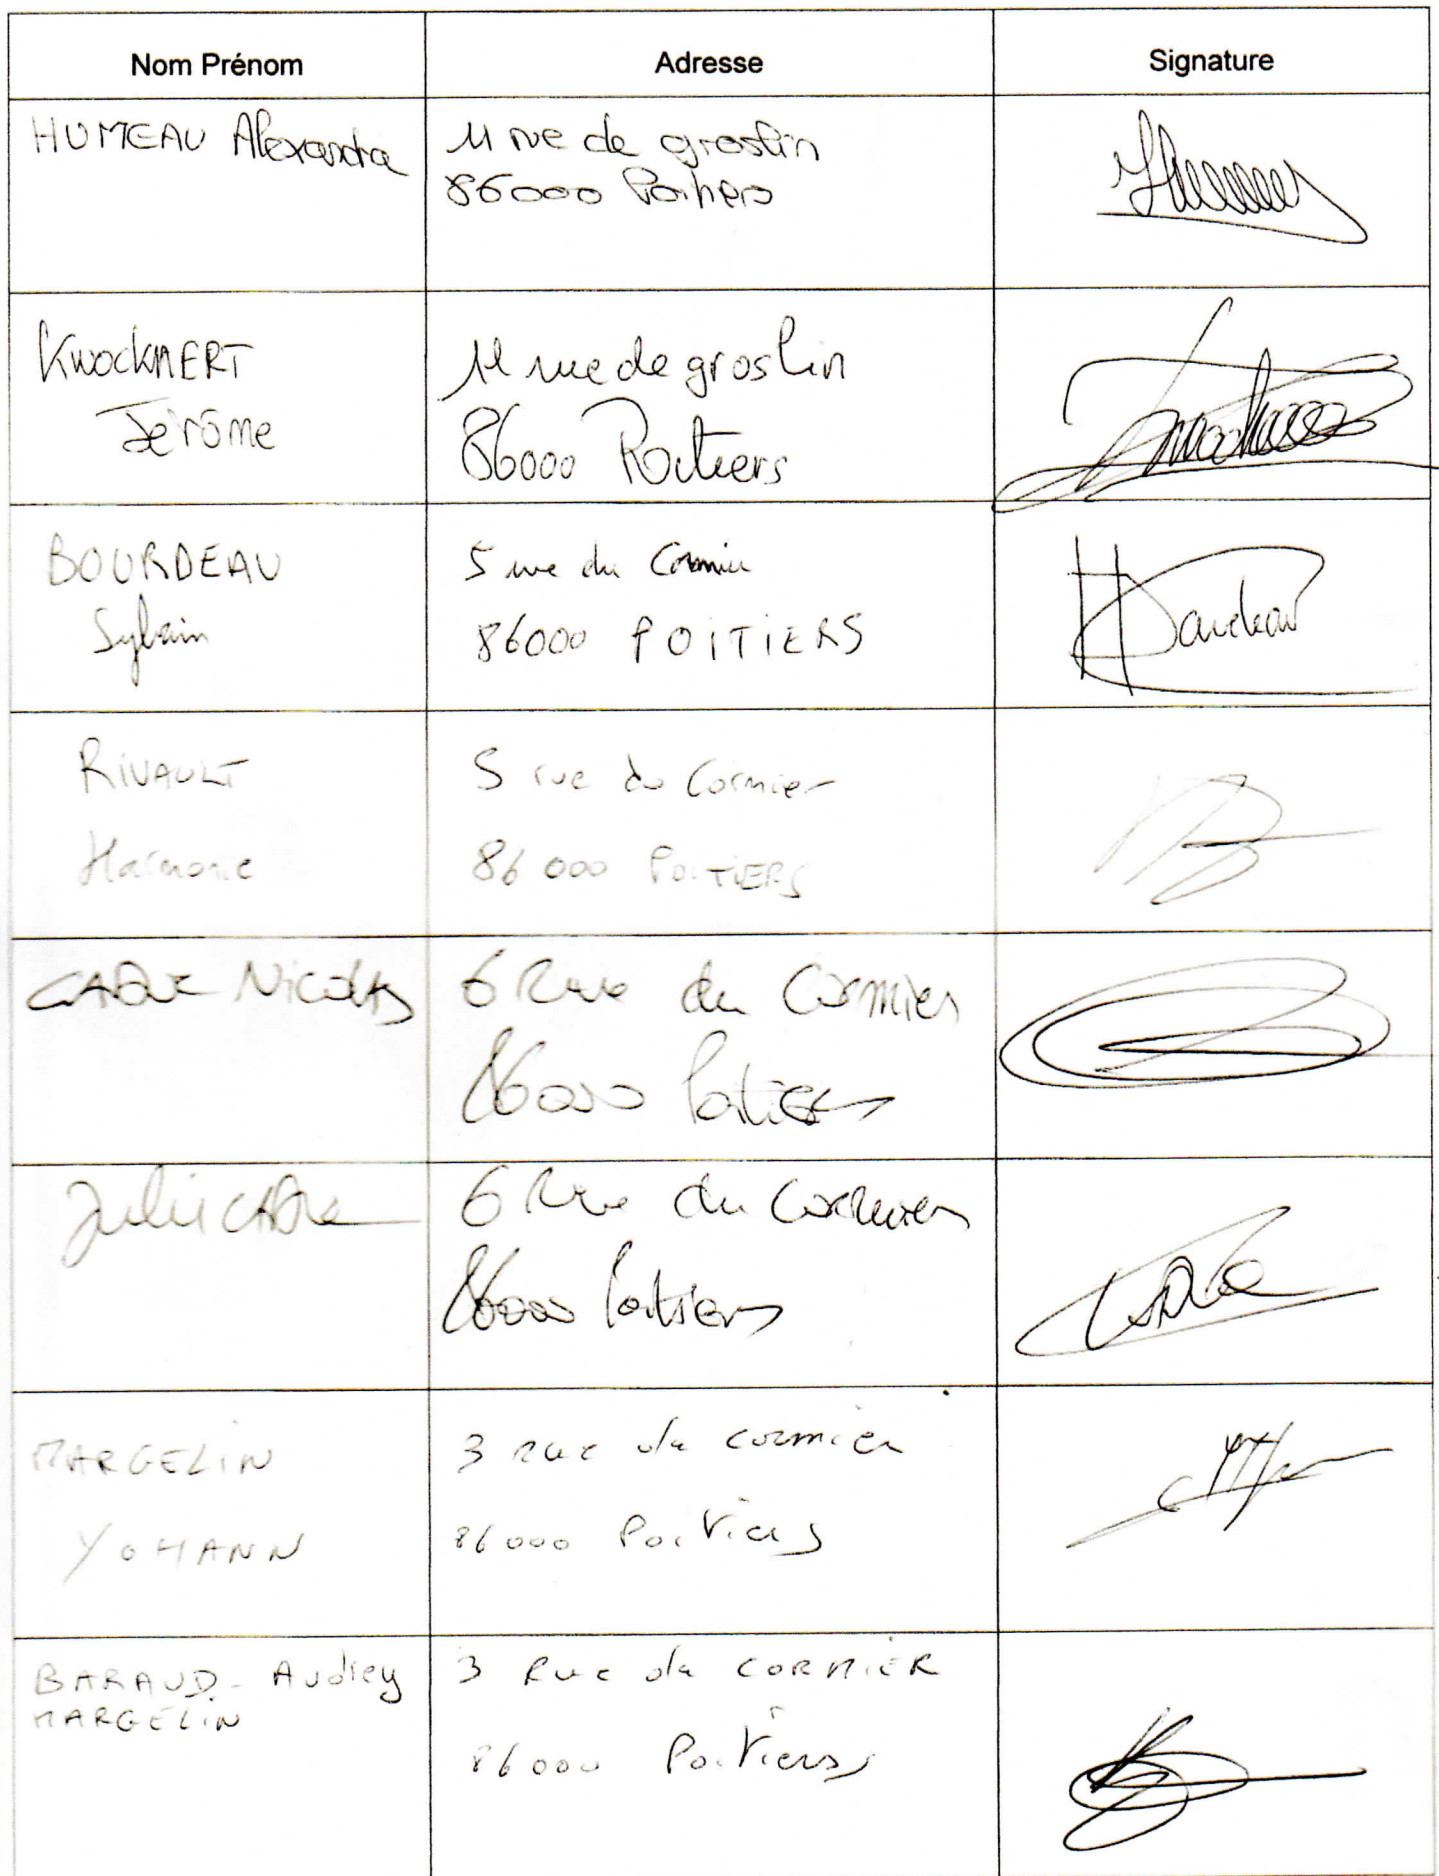 Nom Prénom
Adresse
Signature
HUMEAU Alexandra
11 rue de groslin
86000 Poitiers
KWOCKAERT
Jérôme
11 rue de groslin
86000 Poitiers
BOURDEAU
Sylvain
5 rue du Cormier
86000 POITIERS
RIVAULT
Harmonie
5 rue du Cormier
86 000 POITIERS
Nicolas
6 Rue du Cormier
86000 Poitiers
Julie
6 Rue du Cormier
86000 Poitiers
MARGELIN
YOHANN
3 rue du cormier
86000 Poitiers
BARAUD - Audrey
MARGELIN
3 Rue du CORMIER
86000 Poitiers